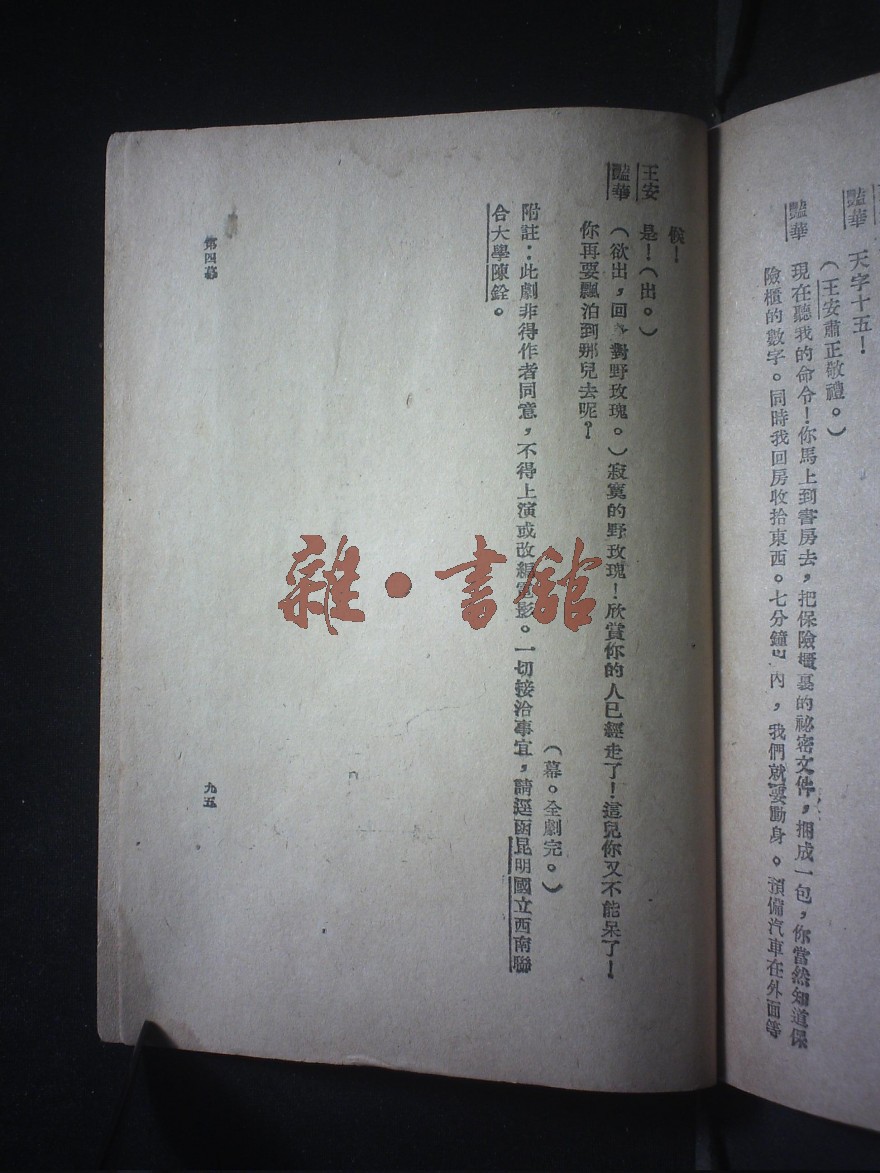 豔華　天字十五！
（王安肅正敬禮。）
豔華　現在聽我的命令！你馬上到書房去，把保險櫃裏的祕密文件，捆成一包，你當然知道保
險櫃的數字。同時我回房收拾東西。七分鐘內，我們就要動身。預備汽車在外面等
候！
王安　是！（出。）
豔華　（欲出，回對野玫瑰。）寂寞的野玫瑰！欣賞你的人已經走了！這兒你又不能呆了！
你再要飄泊到那兒去呢？
（幕。全劇完。）
附註：此劇非得作者同意，不得上演或改編電影。一切接洽事宜，請逕函昆明國立西南聯
合大學陳銓。
第四幕
九五
雜·書館